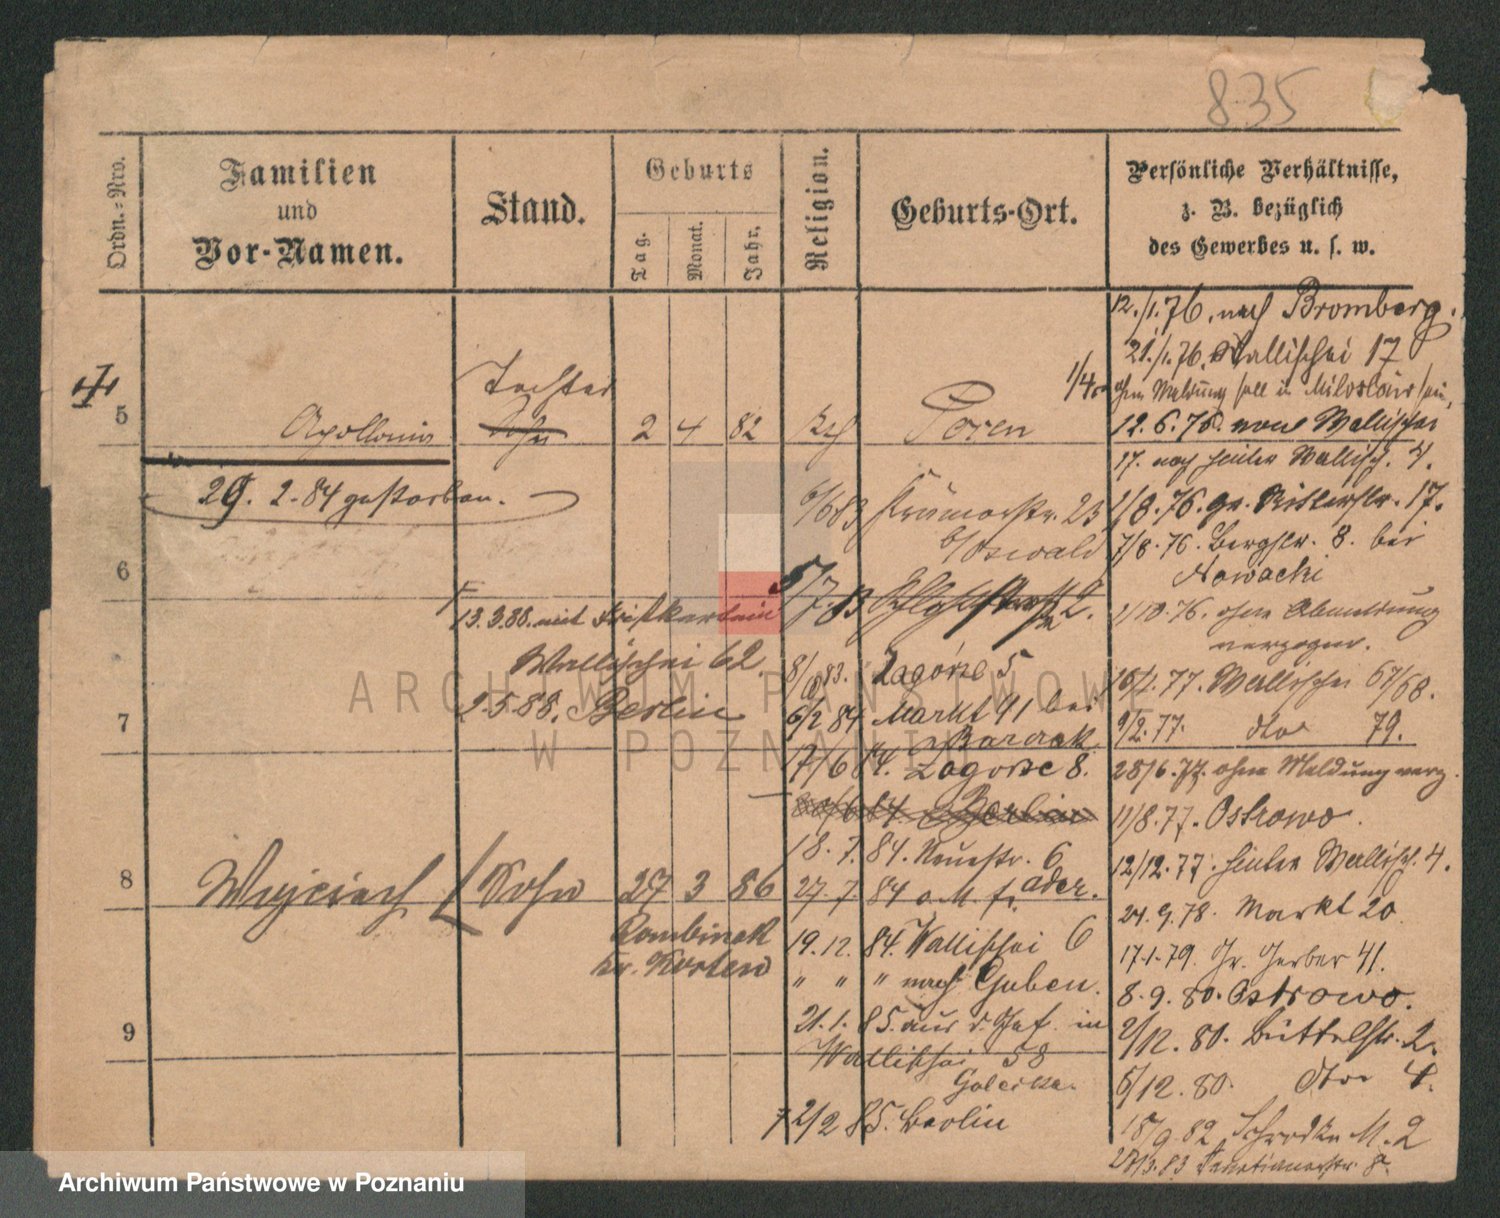 835
Ordn.-Nro.
Familien
und
Vor-Namen.
Stand.
Geburts
Tag.
Monat.
Jahr.
Religion.
Geburts-Ort.
Persönliche Verhältnisse,
z. B. bezüglich
des Gewerbes u. s. w.
5
Apollonia
Tochter
Sohn
2 4 82
Posen
29. 2. 84 gestorben.
6
13.3.88. mit
Wallischei 62
2.5 88. Berlin
7
8
Wojciech
Sohn
27 3 86
Rombinek
Kr. Kosten
9
6/6 83 Krämerstr. 23
b/Oswald
5/7. 83 2.
8/8 83. Zagórze 5
6/2 84 Markt 91 bei
17/6 84. Zagorze 8.
84. Berlin
18. 7. 84. Neuestr. 6
27. 7. 84 o. M. fr. oder.
19. 12. 84. Wallischei 6
" " " nach Guben.
21. 1. 85. aus d. Gef. in
Wallischei 58
2/2 85. Berlin
12./1. 76. nach Bromberg.
21./1. 76. Wallischei 17
1/4. ohne Meldung soll in Miloslaw sein,
12. 6. 76. von Wallischei
17. nach hinter Wallisch. 4.
1/8. 76. gr. Ritterstr. 17.
7/8. 76. Bergstr. 8. bei
Nowacki
1/10. 76. ohne Abmeldung
verzogen.
77. Wallischei 67/68.
9/2. 77. dto 79.
28/6. 77. ohne Meldung verz.
11/8. 77. Ostrowo.
12/12. 77. hinter Wallisch. 4.
24. 9. 78. Markt 20
17.1.79. Gr. Gerber 41.
8. 9. 80. Ostrowo.
2/12. 80. Büttelstr. 2.
6/12. 80. dto 4.
18/9. 82 Schrodka M. 2
83 Venetianerstr. 8.
ARCHIWUM PAŃSTWOWE
W POZNANIU
Archiwum Państwowe w Poznaniu